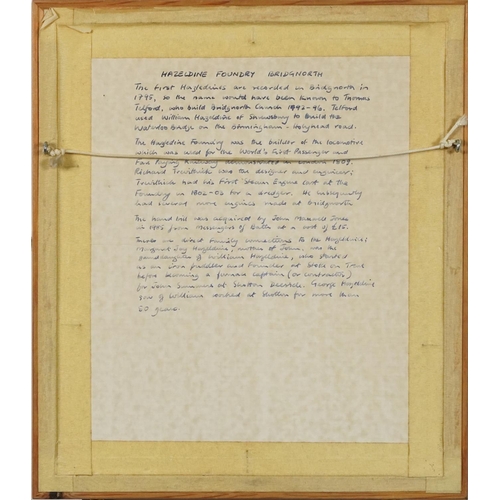 HAZELDINE FOUNDRY BRIDGNORTH
The first Hazledines are recorded in Bridgnorth in
1795, so the name would have been known to Thomas
Telford, who build Bridgnorth Church 1792-96. Telford
used William Hazledine of Shrewsbury to build the
Waterloo Bridge on the Birmingham - Holyhead road.
The Hazledine Foundry was the builder of the locomotive
which was used for the World's first Passenger and
Fare Paying Railway in London 1808.
Richard Trevithick was the designer and engineer;
Trevithick had his first Steam Engine cast at the
Foundry in 1802-03 for a dredger. He subsequently
had several more engines made at Bridgnorth
The hand bill was acquired by John Jones
in 1995 from of Bath at a cost of £15.
direct family connections to the Hazledine;
Margaret Hazledine, mother of John, was the
granddaughter of William Hazledine, who started
as an iron puddler at Stoke on Trent
before becoming a furnace captain (or contractor)
for John Summers at Shotton Deeside. George Hazledine
son of William worked at Shotton for more than
50 years.